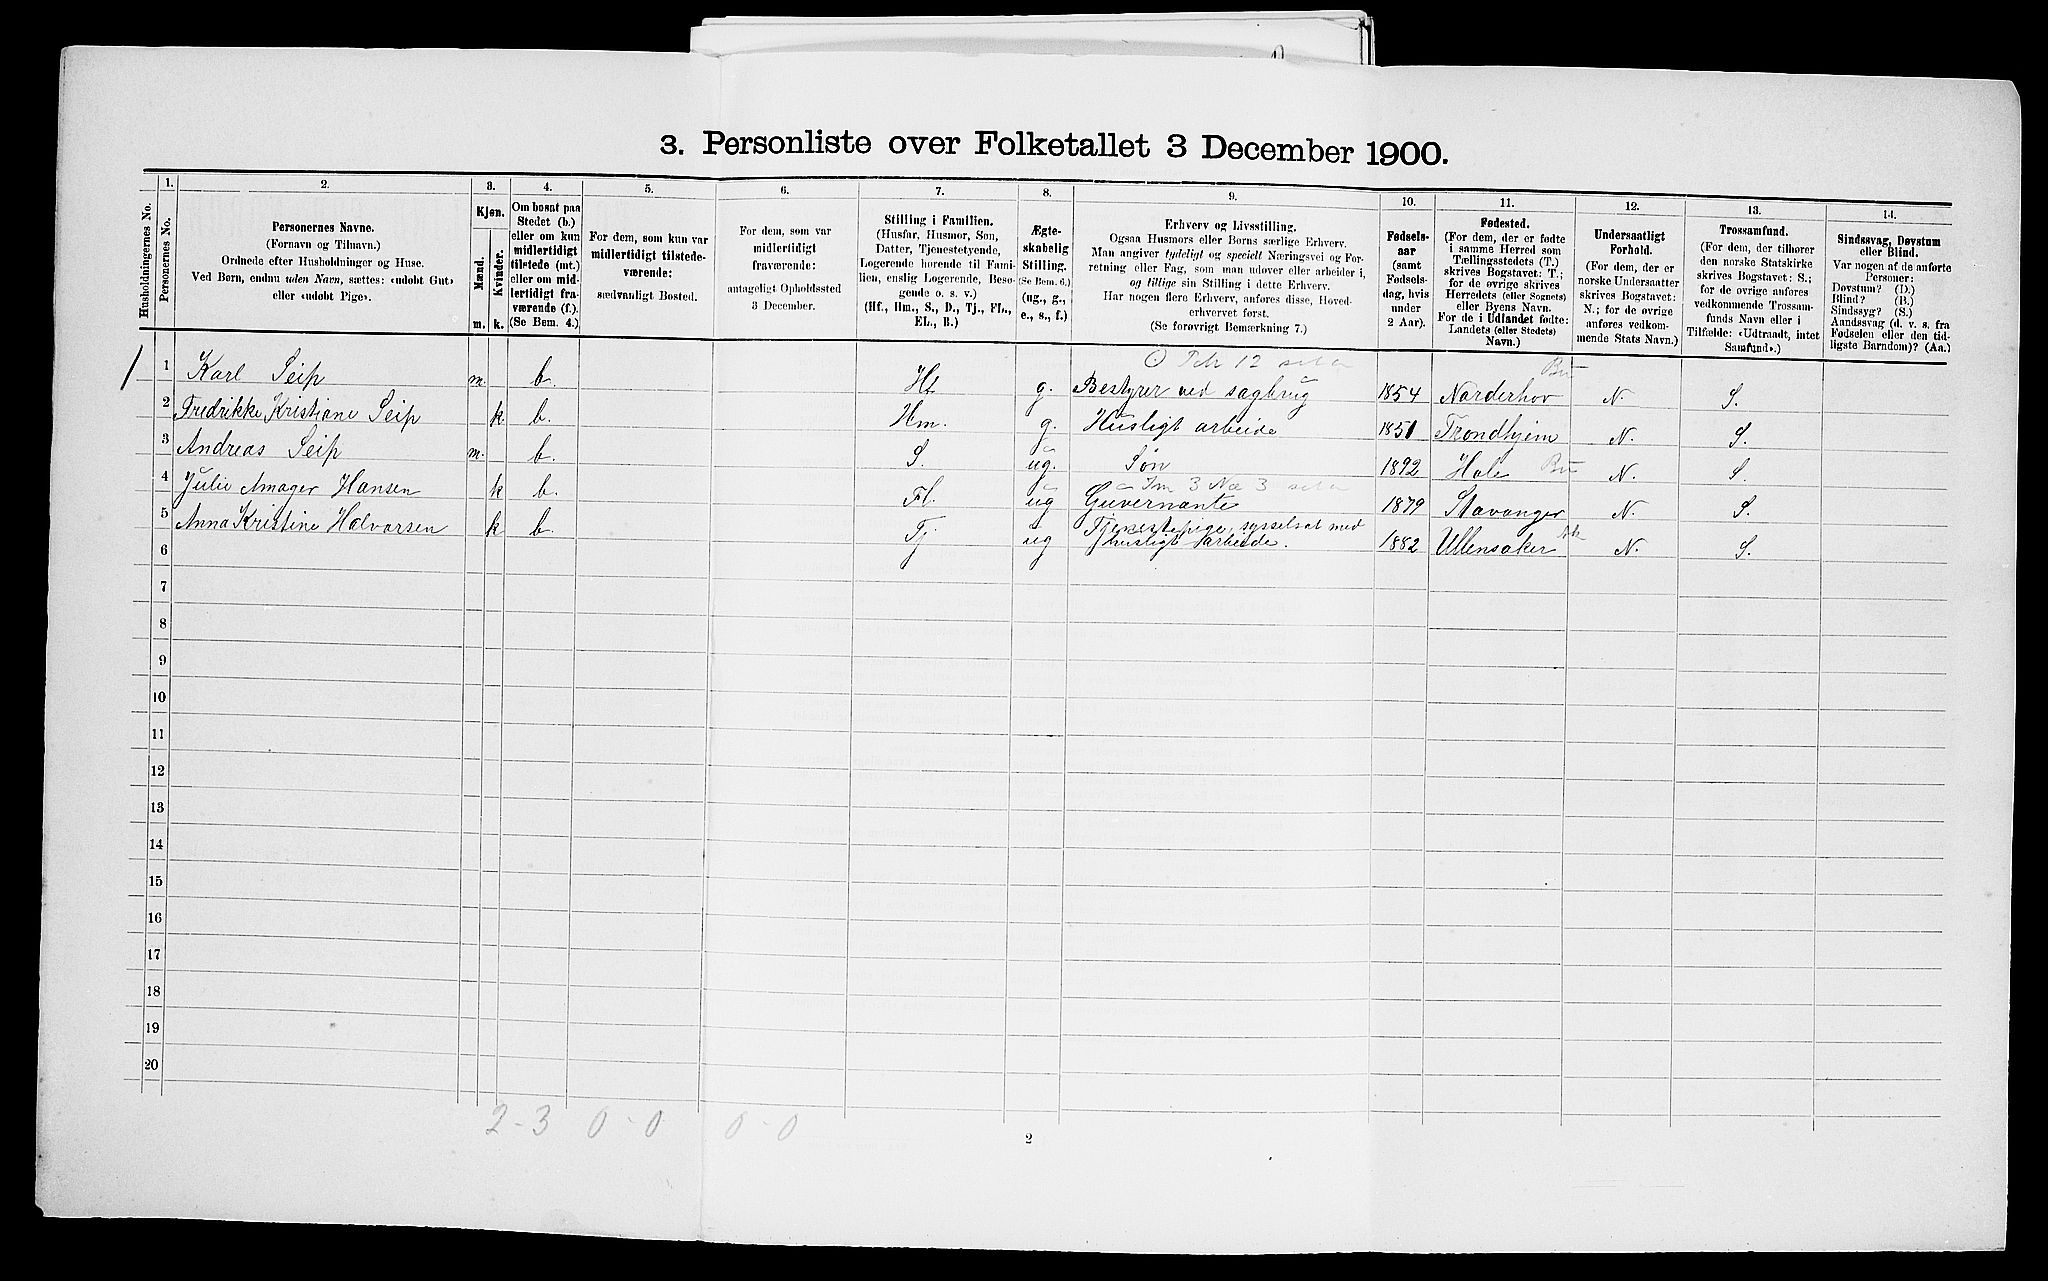 3. Personliste over Folketallet 3 December 1900.
Husholdningernes No.
1.
Personernes No.
2.
Personernes Navne.
(Fornavn og Tilnavn.)
Ordnede efter Husholdninger og Huse.
Ved Børn, endnu uden Navn, sættes: «udøbt Gut»
eller «udøbt Pige».
3.
Kjøn.
Mænd.
Kvinder.
m.
k.
4.
Om bosat paa
Stedet (b.)
eller om kun
midlertidigt
tilstede (mt.)
eller om mid-
lertidigt fra-
værende (f.).
(Se Bem. 4.)
5.
For dem, som kun var
midlertidigt tilstede-
værende:
sædvanligt Bosted.
6.
For dem, som var
midlertidigt
fraværende:
antageligt Opholdssted
3 December.
7.
Stilling i Familien.
(Husfar, Husmor, Søn,
Datter, Tjenestetyende,
Logerende hørende til Fami-
lien, enslig Logerende, Besø-
gende o. s. v.)
(Hf., Hm., S., D., Tj., FL.,
EL., B.)
8.
Ægte-
skabelig
Stilling.
(Se Bem. 6.)
(ug., g.,
e., s., f.)
9.
Erhverv og Livsstilling.
Ogsaa Husmors eller Børns særlige Erhverv.
Man angiver tydeligt og specielt Næringsvei og For-
retning eller Fag, som man udøver eller arbeider i,
og tillige sin Stilling i dette Erhverv.
Har nogen flere Erhverv, anføres disse, Hoved-
erhvervet først.
(Se forøvrigt Bemærkning 7.)
10.
Fødsels-
aar
(samt
Fødsels-
dag, hvis
under
2 Aar).
11.
Fødested.
(For dem, der er fødte
i samme Herred som
Tællingsstedets (T.)
skrives Bogstavet: T.;
for de øvrige skrives
Herredets (eller Sognets)
eller Byens Navn.
For de i Udlandet fødte:
Landets (eller Stedets)
Navn.)
12.
Undersaatligt
Forhold.
(For dem, der er
norske Undersaatter
skrives Bogstavet:
N.; for de øvrige
anføres vedkom-
mende Stats Navn.)
13.
Trossamfund.
(For dem, der tilhører
den norske Statskirke
skrives Bogstavet: S.;
for de øvrige anføres
vedkommende Trossam-
funds Navn eller i
Tilfælde: «Udtraadt, intet
Samfund».)
14.
Sindssvag, Døvstum
eller Blind.
Var nogen af de anførte
Personer:
Døvstum? (D.)
Blind? (B.)
Sindssyg? (S.)
Aandssvag (d. v. s. fra
Fødselen eller den tid-
ligste Barndom)? (Aa.)
1 1 Karl Seip m. b. Hf g. Bestyrer ved sagbrug 1854 Norderhov Bu N. S.
2 Fredrikke Kristiane Seip k b. Hm. g. Husligt arbeide 1851 Trondhjem N. S.
3 Andreas Seip m. b. S. ug. Søn 1892 Hole Bu N. S.
4 Julie Amager Hansen k b. Fl. ug Guvernante 1879 Stavanger N. S.
5 Anna Kristine Halvorsen k b. Tj ug Tjenestepige, sysselsat med
husligt arbeide. 1882 Ullensaker Ak N. S.
6
7
8
9
10
11
12
13
14
15
16
17
18
19
20
2 - 3 0 - 0 0 - 0
2